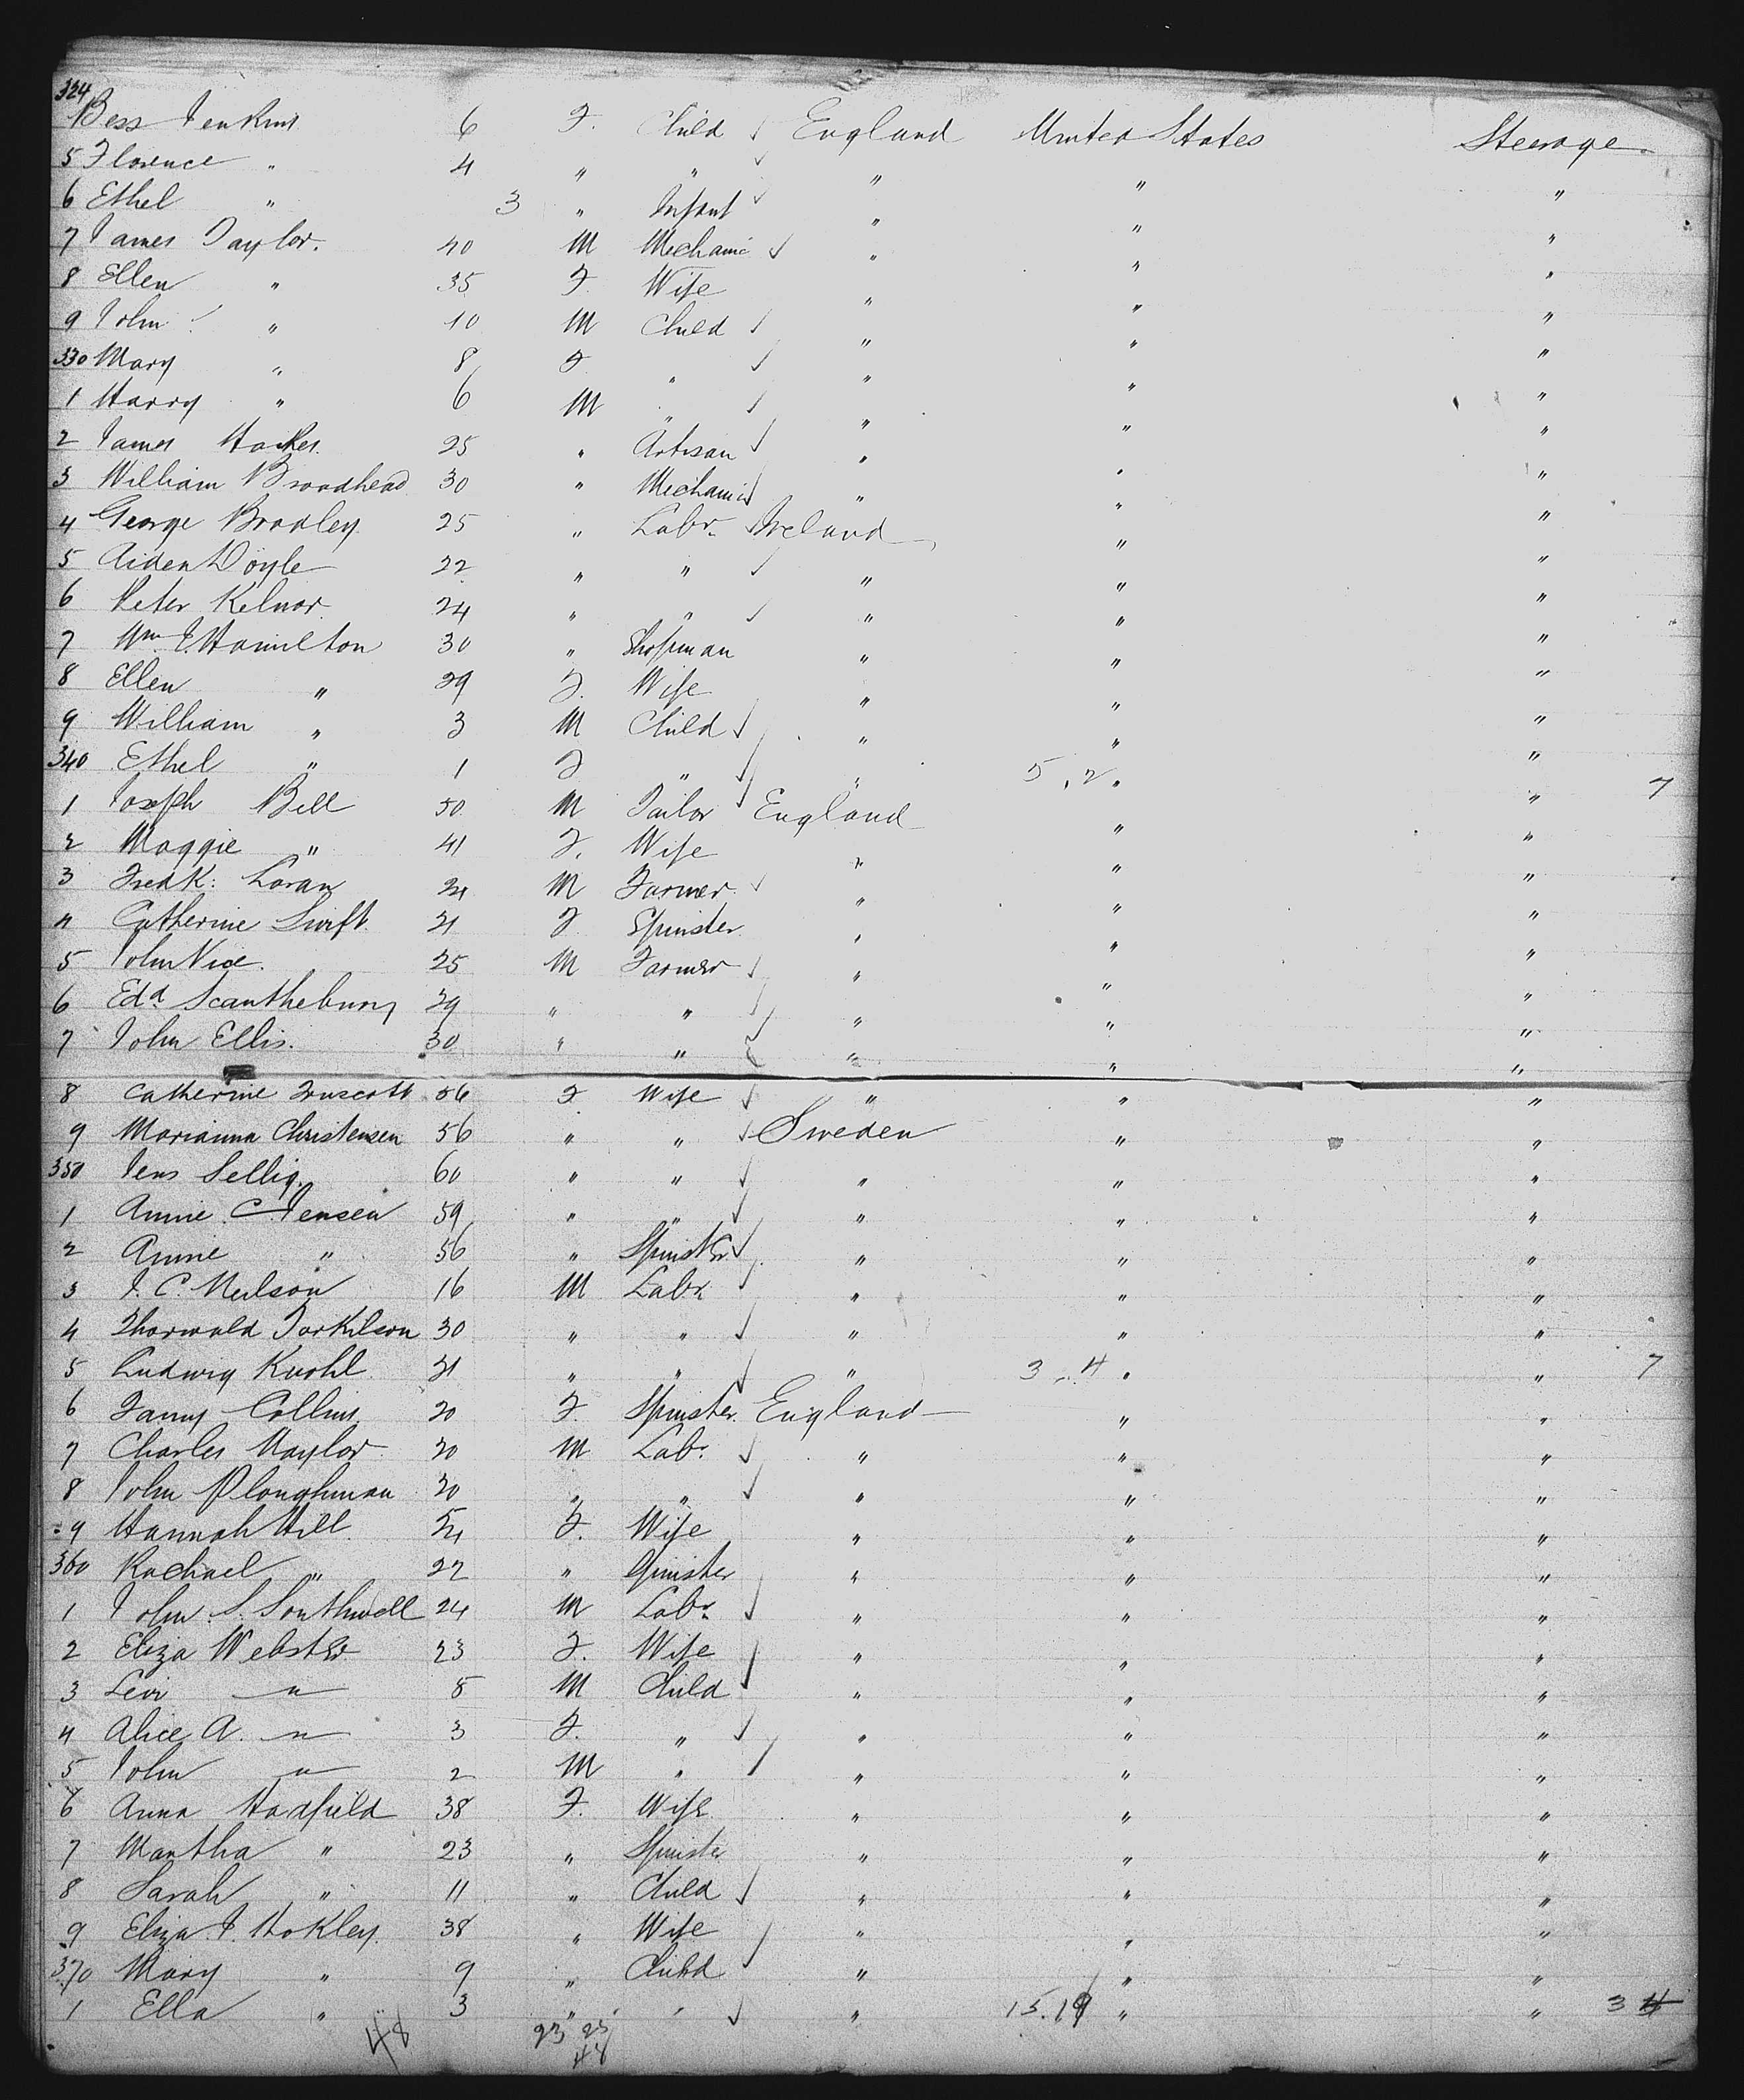 324 Bess Jenkins 6 F. Child ✓ England United States Steerage
5 Florence " 4 " " ✓ " " "
6 Ethel " 3 " Infant ✓ " " "
7 James Taylor. 40 M Mechanic ✓ " " "
8 Ellen " 35 F. Wife " " "
9 John " 10 M Child ✓ " " "
330 Mary " 8 F " ✓ " " "
1 Harry " 6 M " ✓ " " "
2 James 25 " Artisan ✓ " " "
3 William Broadhead 30 " Mechanic ✓ " " "
4 George Bradley 25 " Labr. ✓ Ireland " "
5 Aiden Doyle 22 " " ✓ " " "
6 Peter 24 " " ✓ " " "
7 Wm. J. Hamilton 30 " Shopman " " "
8 Ellen " 29 F. Wife " " "
9 William " 3 M Child ✓ " " "
340 Ethel " 1 F " ✓ " 5.2 " " 7
1 Joseph Bell 50 M Tailor ✓ England " "
2 Maggie " 41 F. Wife " " "
3 Fredk: Loran M Farmer ✓ " " "
4 Catherine Swift 21 F Spinster " " "
5 John Vice. 25 M Farmer ✓ " " "
6 Edd Scanthebury 29 " " ✓ " " "
7 John Ellis. 30 " " ✓ " " "
8 Catherine Truscott 56 F Wife ✓ " " "
9 Marianna Christensen 56 " " ✓ Sweden " "
350 Jens Sellig. 60 " " ✓ " " "
1 Annie C. Jensen 59 " " ✓ " " "
2 Annie " 56 " Spinster ✓ " " "
3 J. C. Neilson 16 M Labr. ✓ " " "
4 Thorwald Torkilson 30 " " ✓ " " "
5 Ludwig 21 " " ✓ " 3.4 " " 7
6 Fanny Collins 20 F. Spinster England " "
7 Charles Naylor 20 M Labr. ✓ " " "
8 John Ploughman 20 " " ✓ " " "
9 Hannah Hill F. Wife " " "
360 Rachael " 22 " Spinster " " "
1 John S. Southwell 24 M Labr. ✓ " " "
2 Eliza Webster 23 F. Wife " " "
3 Levi " 5 M Child ✓ " " "
4 Alice A. " 3 F. " ✓ " " "
5 John " 2 M " ✓ " " "
6 Anna Hadfield 38 F. Wife " " "
7 Martha " 23 " Spinster " " "
8 Sarah " 11 " Child ✓ " " "
9 Eliza J. Hokley 38 " Wife " " "
370 Mary " 9 " Child ✓ " " "
1 Ella " 3 " " ✓ " 15.19 " " 3 4
48 23 25
48